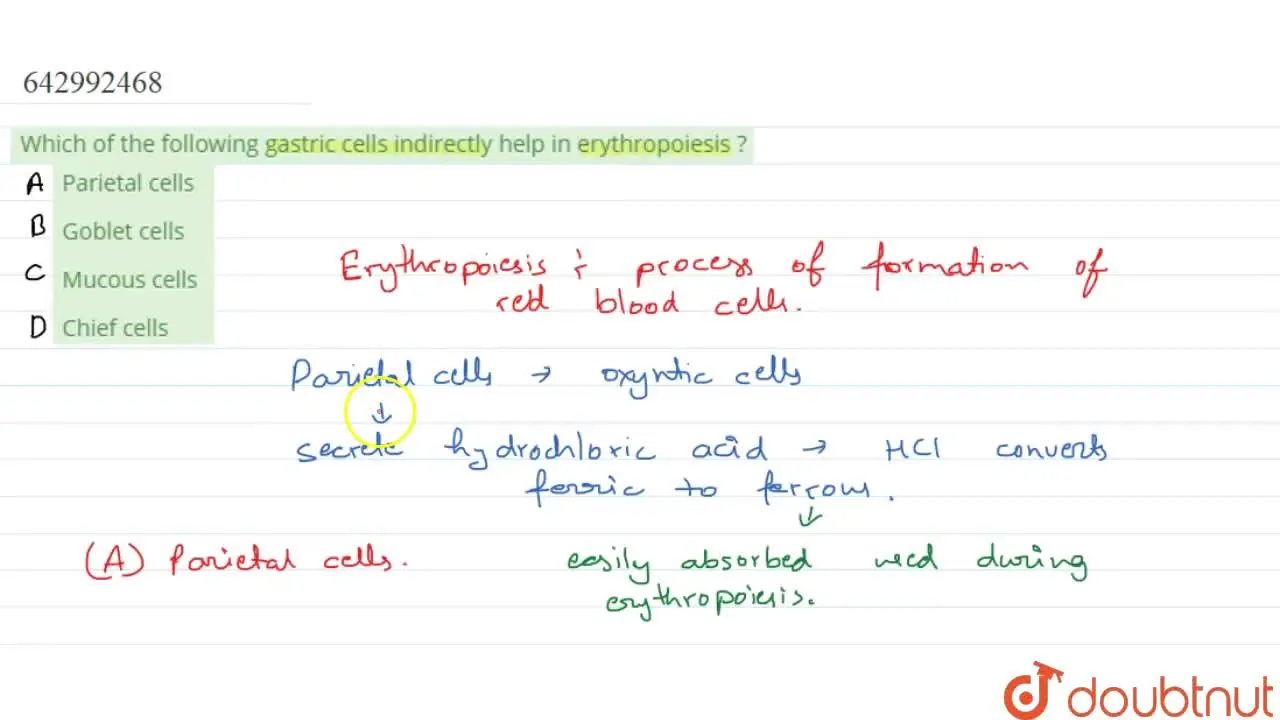 642992468
Which of the following gastric cells indirectly help in erythropoiesis ?
A Parietal cells
B Goblet cells
C Mucous cells
D Chief cells
Erythropoiesis : process of formation of
red blood cells.
Parietal cells → oxyntic cells
↓
secrete hydrochloric acid → HCl converts
ferric to ferrous.
↓
easily absorbed used during
erythropoiesis.
(A) Parietal cells.
doubtnut